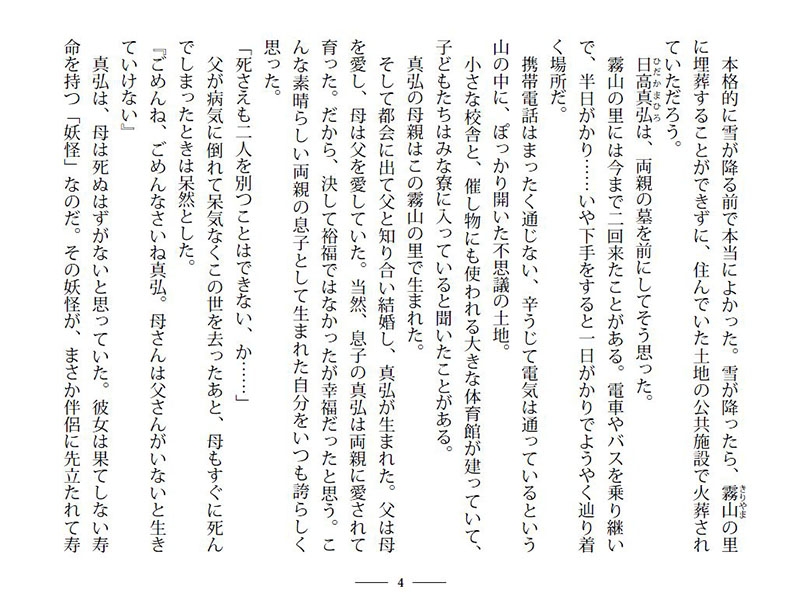 本格的に雪が降る前で本当によかった。雪が降ったら、霧山の里
に埋葬することができずに、住んでいた土地の公共施設で火葬され
ていただろう。
日高真弘は、両親の墓を前にしてそう思った。
霧山の里には今まで二回来たことがある。電車やバスを乗り継い
で、半日がかり……いや下手をすると一日がかりでようやく辿り着
く場所だ。
携帯電話はまったく通じない、辛うじて電気は通っているという
山の中に、ぽっかり開いた不思議の土地。
小さな校舎と、催し物にも使われる大きな体育館が建っていて、
子どもたちはみな寮に入っていると聞いたことがある。
真弘の母親はこの霧山の里で生まれた。
そして都会に出て父と知り合い結婚し、真弘が生まれた。父は母
を愛し、母は父を愛していた。当然、息子の真弘は両親に愛されて
育った。だから、決して裕福ではなかったが幸福だったと思う。こ
んな素晴らしい両親の息子として生まれた自分をいつも誇らしく
思った。
「死さえも二人を別つことはできない、か……」
父が病気に倒れて呆気なくこの世を去ったあと、母もすぐに死ん
でしまったときは呆然とした。
『ごめんね、ごめんなさいね真弘。母さんは父さんがいないと生き
ていけない』
真弘は、母は死ぬはずがないと思っていた。彼女は果てしない寿
命を持つ「妖怪」なのだ。その妖怪が、まさか伴侶に先立たれて寿
4